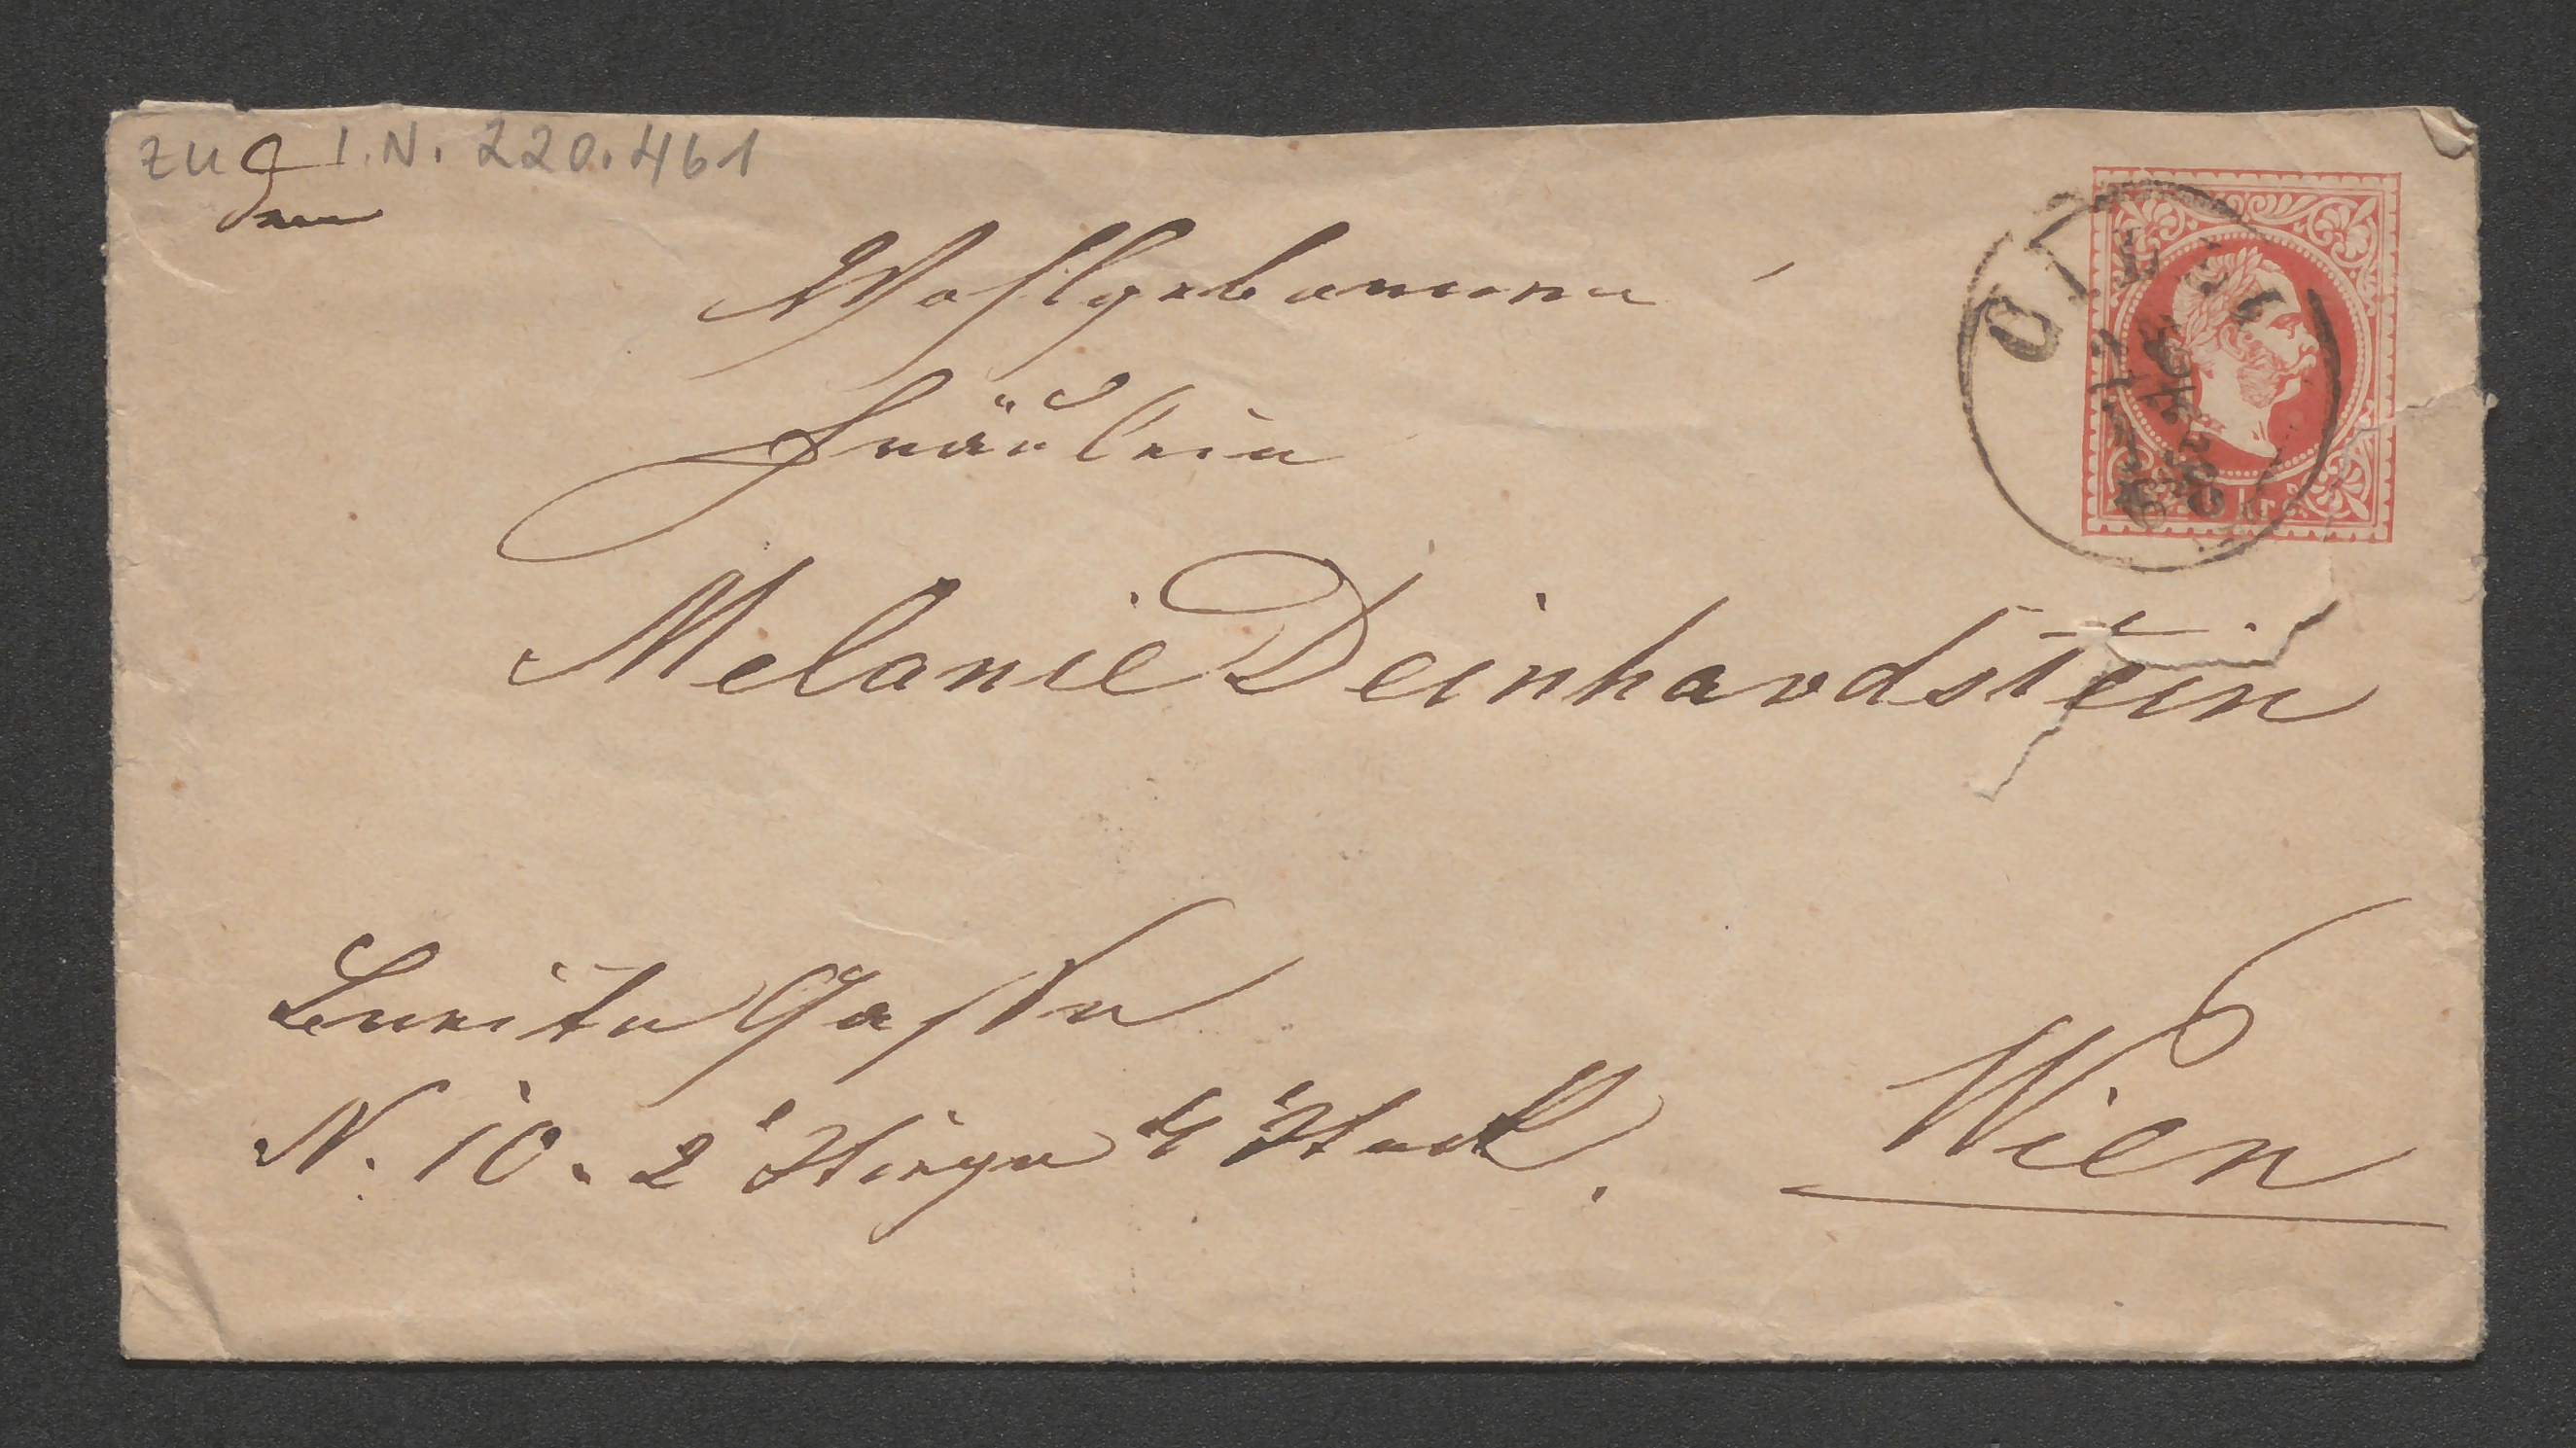 zu I.N. 220.461
Wohlgebornene
Fräulein
Melanie Deinhardstein
Breite Gasse
N. 10. 2 Stiege 4 Stock.
Wien
CILLI
kr.